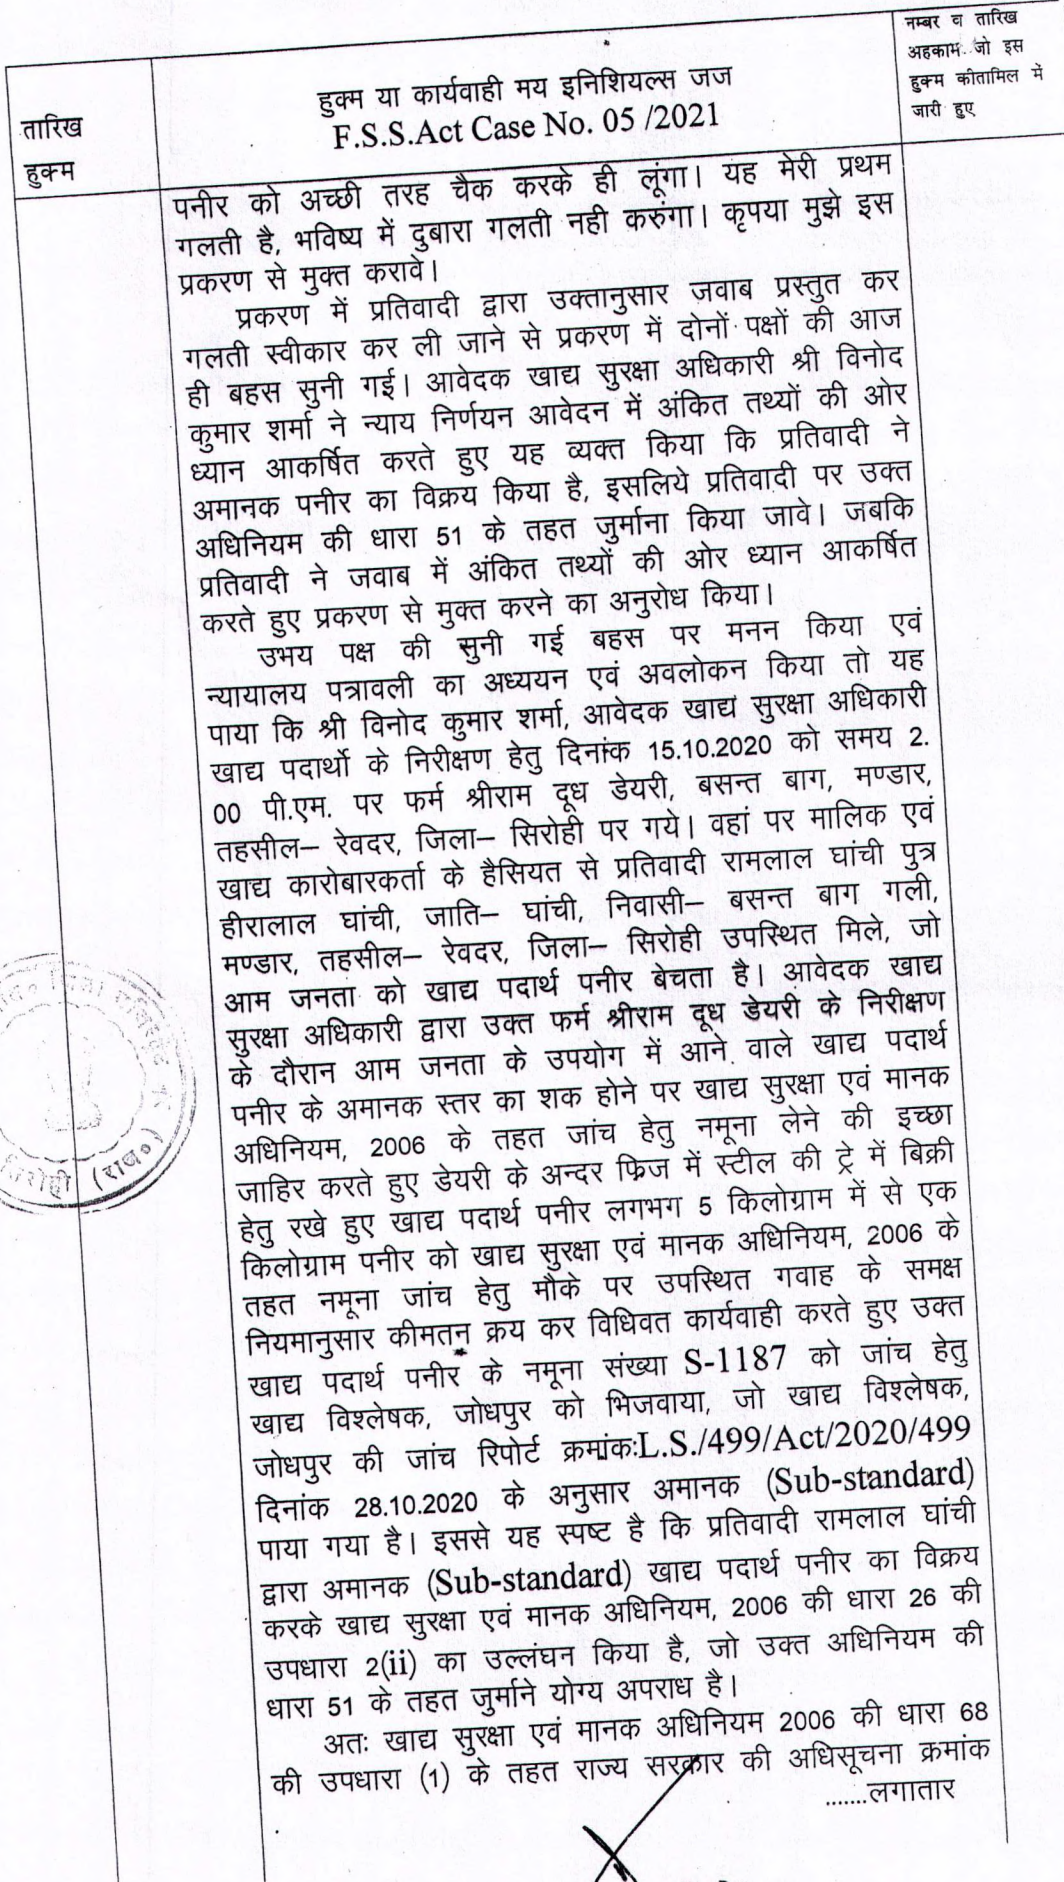 नम्बर व तारिख
अहकाम जो इस
हुक्म कीतामिल में
जारी हुए
तारिख
हुक्म
हुक्म या कार्यवाही मय इनिशियल्स जज
F.S.S.Act Case No. 05 /2021
पनीर को अच्छी तरह चैक करके ही लूंगा। यह मेरी प्रथम
गलती है, भविष्य में दुबारा गलती नही करुंगा। कृपया मुझे इस
प्रकरण से मुक्त करावे।
प्रकरण में प्रतिवादी द्वारा उक्तानुसार जवाब प्रस्तुत कर
गलती स्वीकार कर ली जाने से प्रकरण में दोनों पक्षों की आज
ही बहस सुनी गई। आवेदक खाद्य सुरक्षा अधिकारी श्री विनोद
कुमार शर्मा ने न्याय निर्णयन आवेदन में अंकित तथ्यों की ओर
ध्यान आकर्षित करते हुए यह व्यक्त किया कि प्रतिवादी ने
अमानक पनीर का विक्रय किया है, इसलिये प्रतिवादी पर उक्त
अधिनियम की धारा 51 के तहत जुर्माना किया जावे। जबकि
प्रतिवादी ने जवाब में अंकित तथ्यों की ओर ध्यान आकर्षित
करते हुए प्रकरण से मुक्त करने का अनुरोध किया।
उभय पक्ष की सुनी गई बहस पर मनन किया एवं
न्यायालय पत्रावली का अध्ययन एवं अवलोकन किया तो यह
पाया कि श्री विनोद कुमार शर्मा, आवेदक खाद्य सुरक्षा अधिकारी
खाद्य पदार्थो के निरीक्षण हेतु दिनांक 15.10.2020 को समय 2.
00 पी.एम. पर फर्म श्रीराम दूध डेयरी, बसन्त बाग, मण्डार,
तहसील– रेवदर, जिला– सिरोही पर गये। वहां पर मालिक एवं
खाद्य कारोबारकर्ता के हैसियत से प्रतिवादी रामलाल घांची पुत्र
हीरालाल घांची, जाति– घांची, निवासी– बसन्त बाग गली,
मण्डार, तहसील– रेवदर, जिला– सिरोही उपस्थित मिले, जो
आम जनता को खाद्य पदार्थ पनीर बेचता है। आवेदक खाद्य
सुरक्षा अधिकारी द्वारा उक्त फर्म श्रीराम दूध डेयरी के निरीक्षण
के दौरान आम जनता के उपयोग में आने वाले खाद्य पदार्थ
पनीर के अमानक स्तर का शक होने पर खाद्य सुरक्षा एवं मानक
अधिनियम, 2006 के तहत जांच हेतु नमूना लेने की इच्छा
जाहिर करते हुए डेयरी के अन्दर फ्रिज में स्टील की ट्रे में बिक्री
हेतु रखे हुए खाद्य पदार्थ पनीर लगभग 5 किलोग्राम में से एक
किलोग्राम पनीर को खाद्य सुरक्षा एवं मानक अधिनियम, 2006 के
तहत नमूना जांच हेतु मौके पर उपस्थित गवाह के समक्ष
नियमानुसार कीमतन क्रय कर विधिवत कार्यवाही करते हुए उक्त
खाद्य पदार्थ पनीर के नमूना संख्या S-1187 को जांच हेतु
खाद्य विश्लेषक, जोधपुर को भिजवाया, जो खाद्य विश्लेषक,
जोधपुर की जांच रिपोर्ट क्रमांकः L.S./499/Act/2020/499
दिनांक 28.10.2020 के अनुसार अमानक (Sub-standard)
पाया गया है। इससे यह स्पष्ट है कि प्रतिवादी रामलाल घांची
द्वारा अमानक (Sub-standard) खाद्य पदार्थ पनीर का विक्रय
करके खाद्य सुरक्षा एवं मानक अधिनियम, 2006 की धारा 26 की
उपधारा 2(ii) का उल्लंघन किया है, जो उक्त अधिनियम की
धारा 51 के तहत जुर्माने योग्य अपराध है।
अतः खाद्य सुरक्षा एवं मानक अधिनियम 2006 की धारा 68
की उपधारा (1) के तहत राज्य सरकार की अधिसूचना क्रमांक
.......लगातार
(राज०)